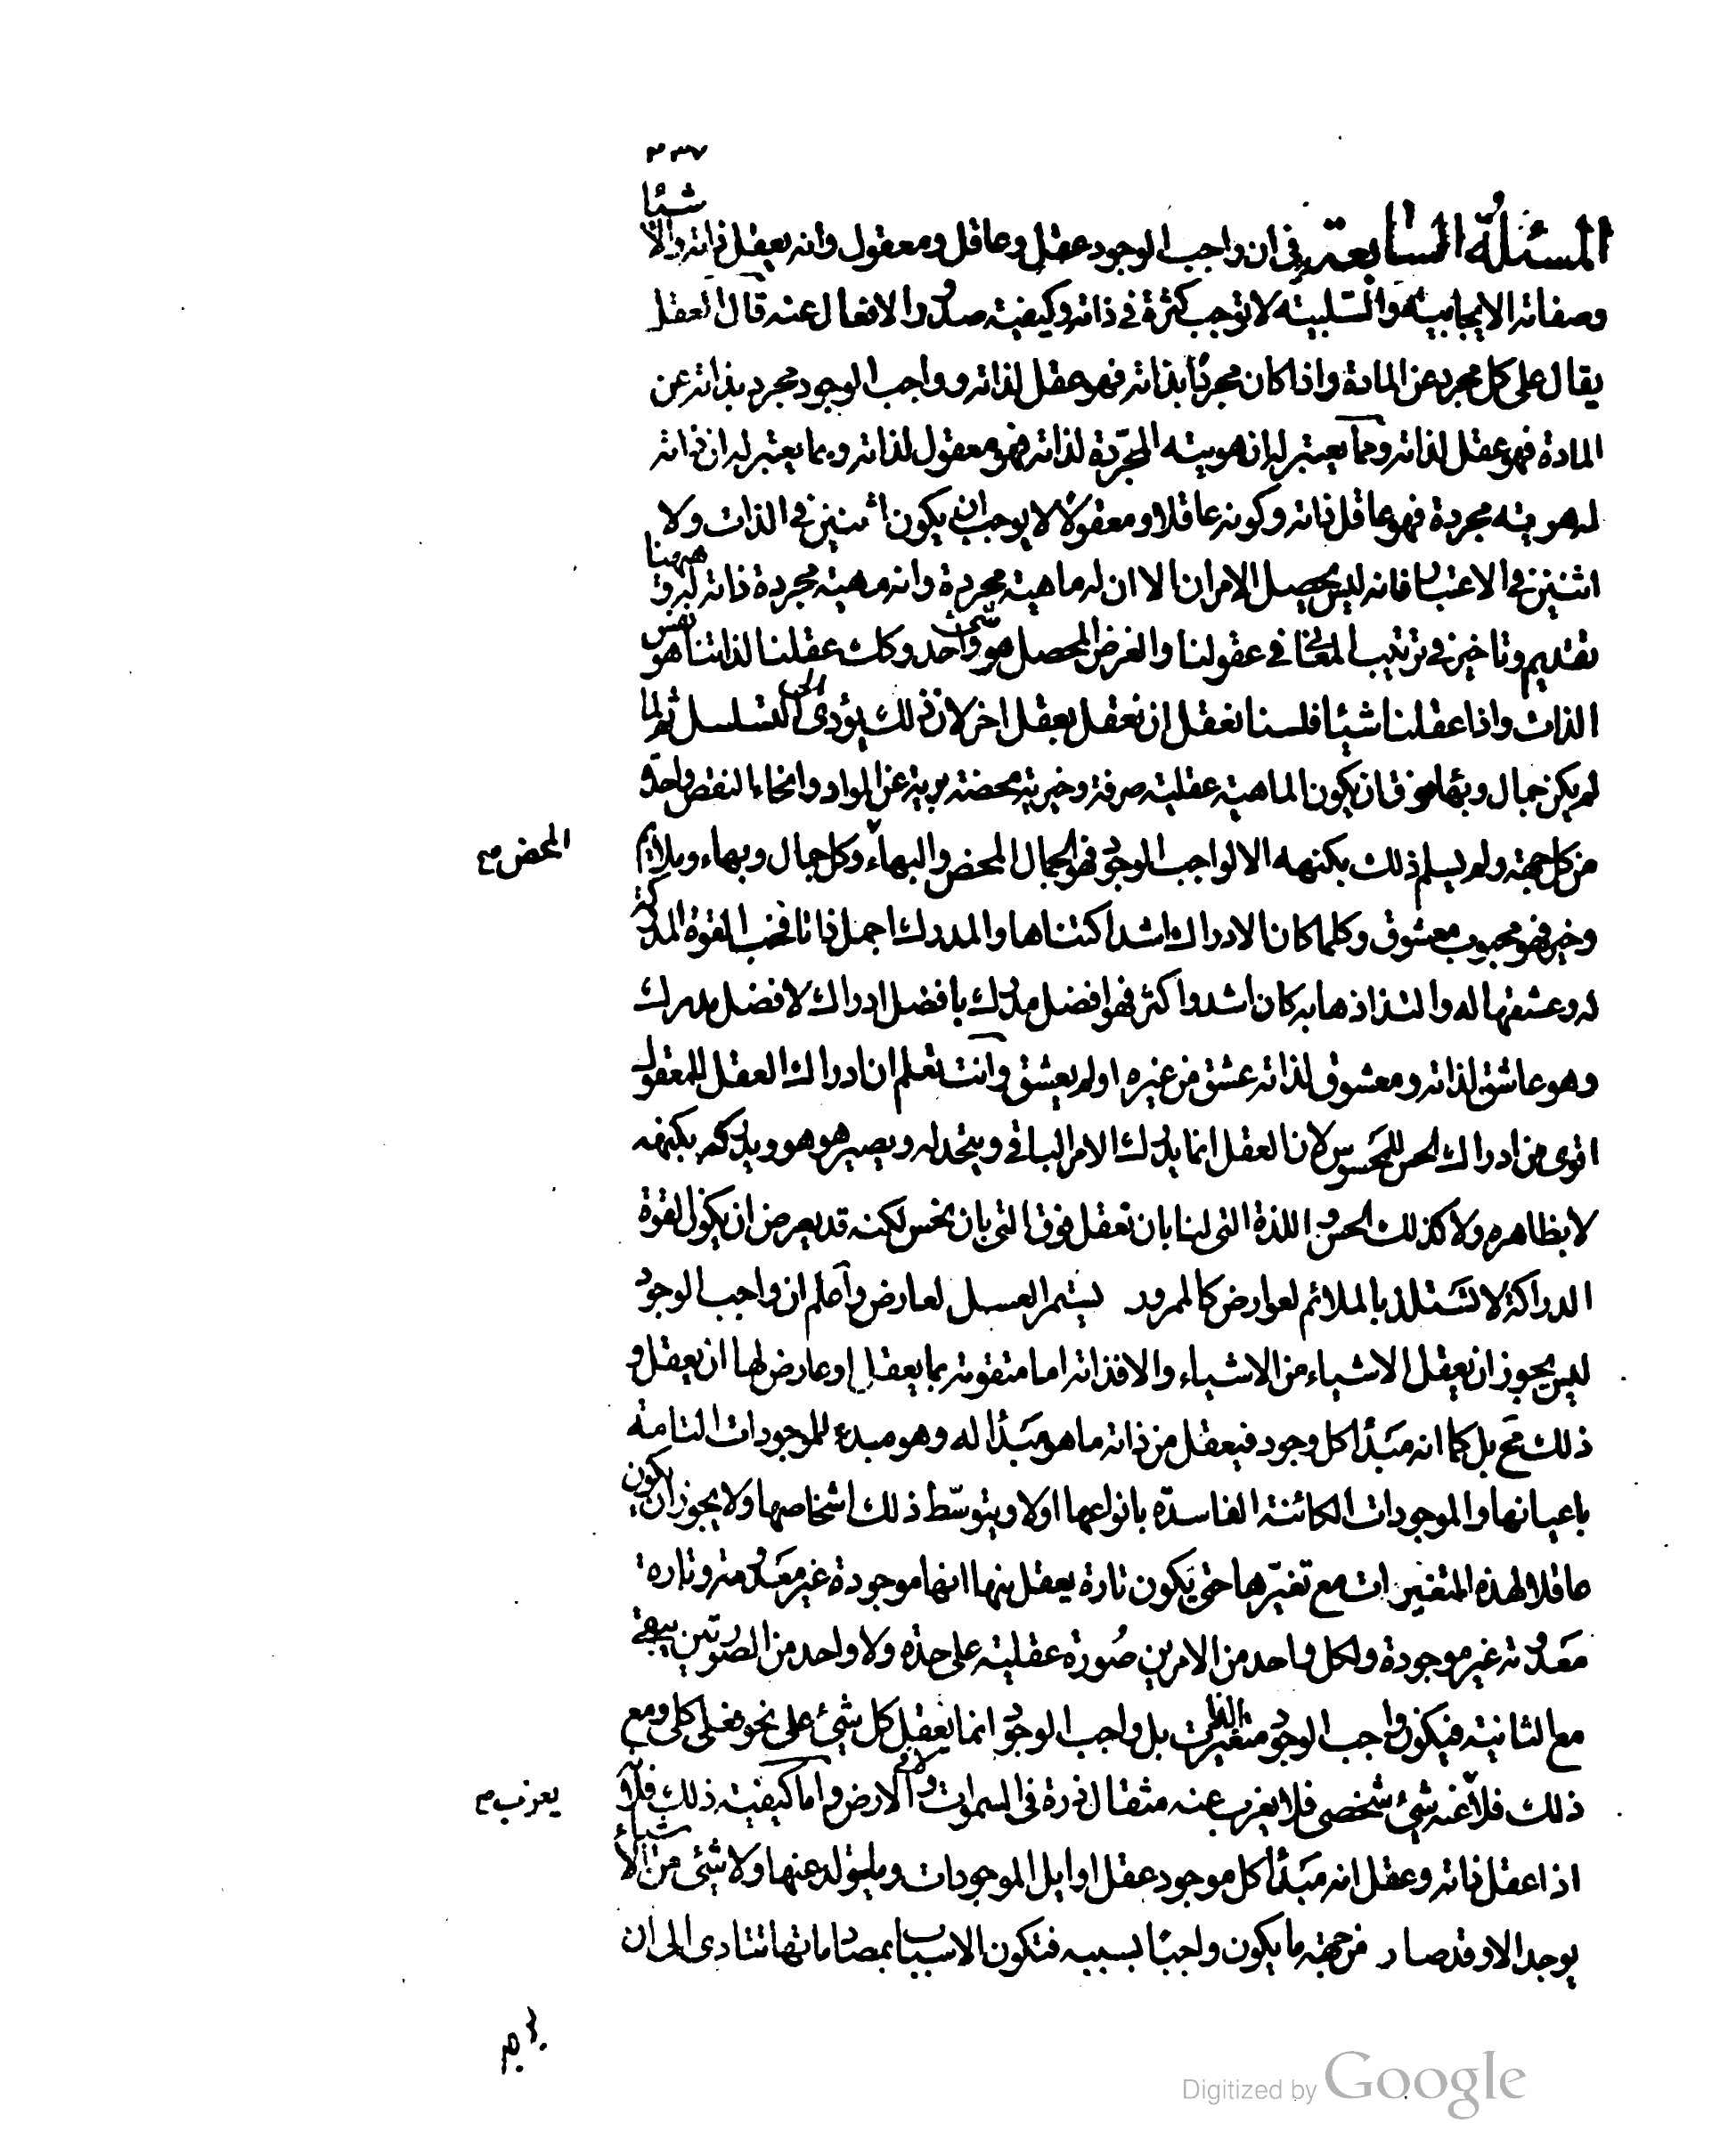 ٢٣٧
المسئلة السابعة في ان واجب الوجود عقل وعاقل ومعقول وانه يعقل ذاته والاشيا
وصفاته الايجابية والسلبية لا توجب كثرة في ذاته وكيفية صدور الافعال عنه قال العقل
يقال على كل مجرد عن المادة واذا كان مجردا بذاته فهو عقل لذاته وواجب الوجود مجرد بذاته عن
المادة فهو عقل لذاته وبما يعتبر له ان هويته المجردة لذاته فهو معقول لذاته وبما يعتبر له ان ذاته
له هوية مجردة فهو عاقل ذاته وكونه عاقلا ومعقولا لا يوجب ان يكون اثنين في الذات ولا
اثنين في الاعتبار فانه ليس تحصيل الامران الا ان له ماهية مجردة وانه مهية مجردة ذاته له وههنا
تقديم وتاخير في ترتيب المعاني في عقولنا والغرض المحصل هو شئ واحد وكك عقلنا لذاتنا هو نفس
الذات واذا عقلنا شيئا فلسنا نعقل ان نعقل بعقل اخر لان ذلك يؤدى الى التسلسل ثم لما
لم يكن جمال وبهاء فوق ان يكون الماهية عقلية صرفة وخيرية محضة برية عن المواد وانحاء النقص واحدة
من كل جهة ولم يسلم ذلك بكنهه الا لواجب الوجود فهو الجمال المحض والبهاء وكل جمال وبهاء وملايم
المحض صح
وخير فهو محبوب معشوق وكلما كان الادراك اشد اكتناها والمدرك اجمل ذاتا فحب القوة المدركة
له وعشقها له والتذاذها به كان اشد واكثر فهو افضل مدرك بافضل ادراك لافضل مدرك
وهو عاشق لذاته ومعشوق لذاته عشق من غيره او لم يعشق وانت تعلم ان ادراك العقل للمعقول
اقوى من ادراك الحس للمحسوس لان العقل انما يدرك الامر الباقي ويتحد به ويصير هو هو ويدركه بكنهه
لا بظاهره ولا كذلك الحس واللذة التى لنا بان نعقل فوق التى بان نحس لكنه قد يعرض ان يكون القوة
الدراكة لا تستلذ بالملائم لعوارض كالممرور يستمر العسل لعارض واعلم ان واجب الوجود
ليس يجوز ان يعقل الاشياء من الاشياء والا فذاته اما متقومة بما يعقل او عارض لها ان يعقل و
ذلك مح بل كما انه مبدأ كل وجود فيعقل من ذاته ما هو مبدأ له وهو مبدء للموجودات التامة
باعيانها والموجودات الكائنة الفاسدة بانواعها اولا وبتوسّط ذلك اشخاصها ولا يجوز ان يكون
عاقلا لهذه المتغيرات مع تغيّرها حتى يكون تارة يعقل منها انها موجودة غير معدومة وتارة
معدومة غير موجودة ولكل واحد من الامرين صورة عقلية على حدة ولا واحد من الصورتين يبقى
مع الثانية فيكون واجب الوجود متغير الذات بل واجب الوجود انما يعقل كل شئ على نحو فعلي كلي ومع
ذلك فلا عنه شئ شخصي فلا يعزب عنه مثقال ذرة في السموات ولا في الارض واما كيفية ذلك فلانه
يعزب صح
اذا عقل ذاته وعقل انه مبدأ كل موجود عقل اوايل الموجودات وما يتولد عنها ولا شئ من الاشياء
يوجد الا وقد صار من جهة ما يكون واجبا بسببه فتكون الاسباب بمصادماتها تتادى الى ان
Digitized by Google